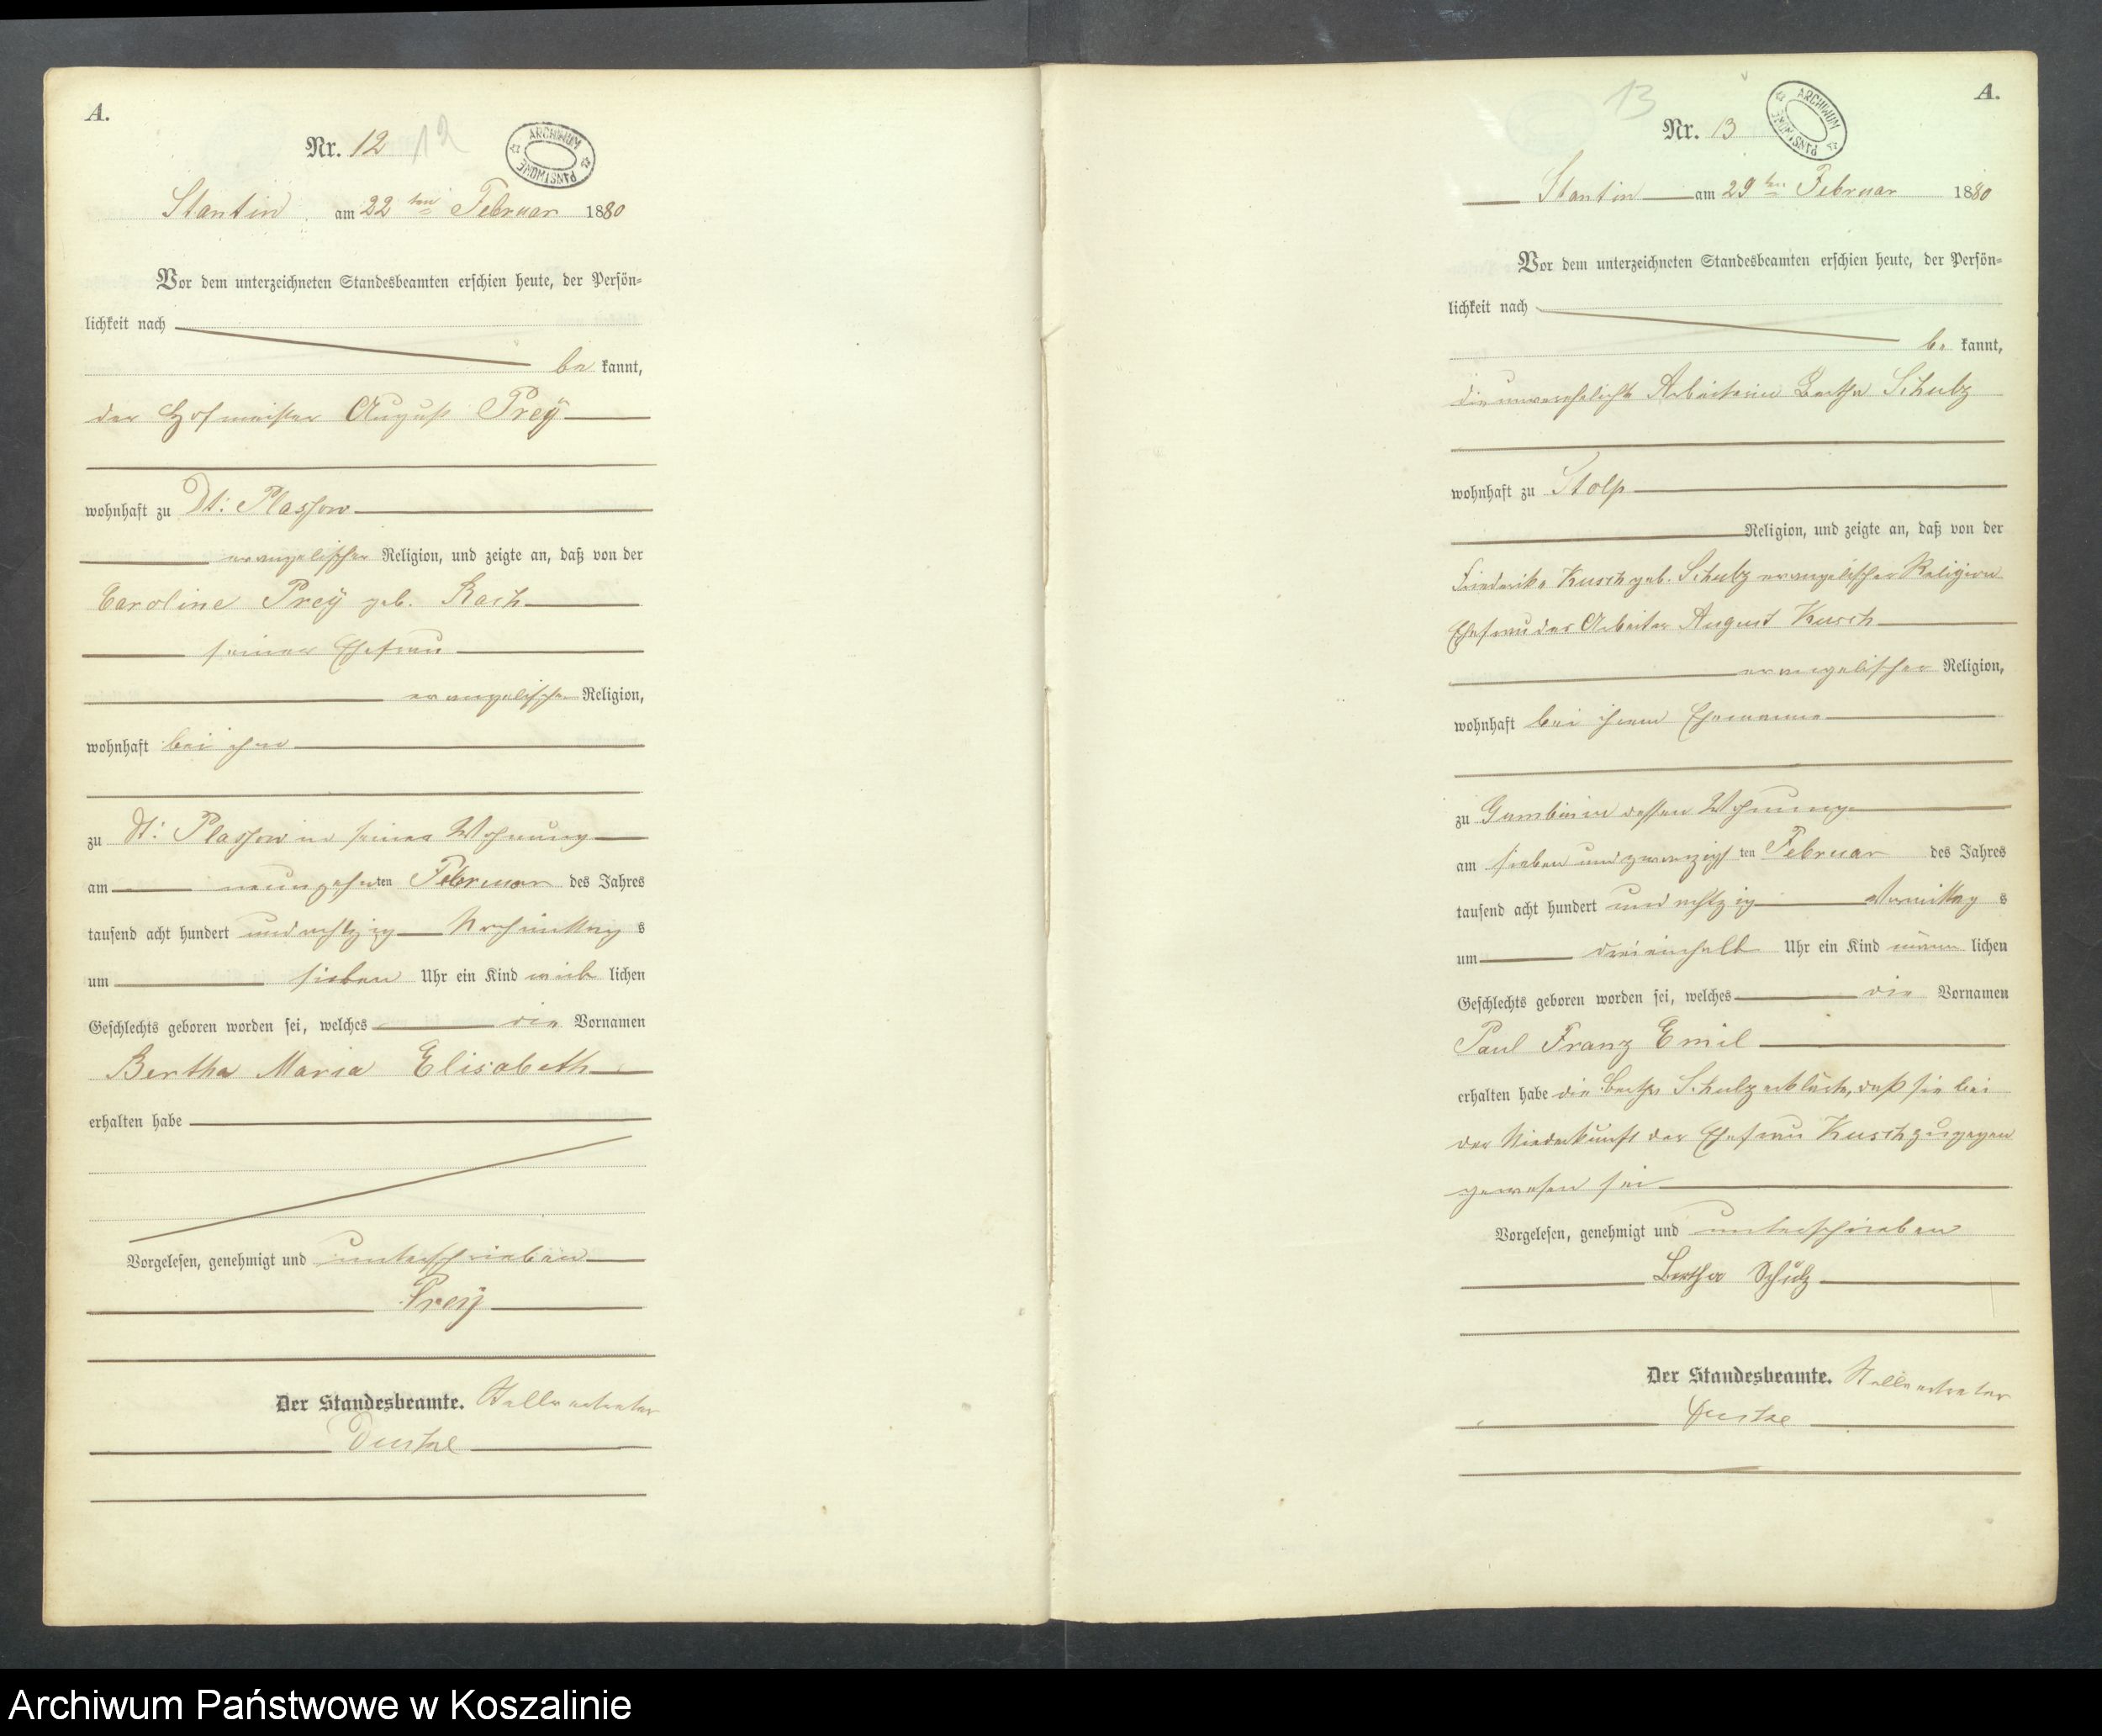 A.
Nr. 12 12
ARCHIWUM PAŃSTWOWE
Stantin am 22ten Februar 1880
Vor dem unterzeichneten Standesbeamten erschien heute, der Persön=
lichkeit nach
be kannt,
der Hofmeister August Preÿ
wohnhaft zu Dt: Plassow
evangelischer Religion, und zeigte an, daß von der
Caroline Preÿ geb. Rach
seiner Ehefrau
evangelischer Religion,
wohnhaft bei ihm
zu Dt: Plassow in seiner Wohnung
am neunzehnten Februar des Jahres
tausend acht hundert und achtzig Nachmittag s
um sieben Uhr ein Kind weib lichen
Geschlechts geboren worden sei, welches die Vornamen
Bertha Maria Elisabeth
erhalten habe
Vorgelesen, genehmigt und unterschrieben
Preÿ
Der Standesbeamte. Stellvertreter
A.
13
Nr. 13
ARCHIWUM PAŃSTWOWE
Stantin am 29ten Februar 1880
Vor dem unterzeichneten Standesbeamten erschien heute, der Persön=
lichkeit nach
be kannt,
die unverehelichte Arbeiterin Bertha Schulz
wohnhaft zu Stolp
Religion, und zeigte an, daß von der
Friederike Kusch geb. Schulz evangelischer Religion
Ehefrau des Arbeiter August Kusch
evangelischer Religion,
wohnhaft bei ihrem Ehemanne
zu Gambin in dessen Wohnung
am sieben und zwanzigsten Februar des Jahres
tausend acht hundert und achtzig Vormittag s
um dreieinhalb Uhr ein Kind männ lichen
Geschlechts geboren worden sei, welches die Vornamen
Paul Franz Emil
erhalten habe die Bertha Schulz erklärte, daß sie bei
der Niederkunft der Ehefrau Kusch zugegen
gewesen sei
Vorgelesen, genehmigt und unterschrieben
Bertha Schulz
Der Standesbeamte. Stellvertreter
Archiwum Państwowe w Koszalinie